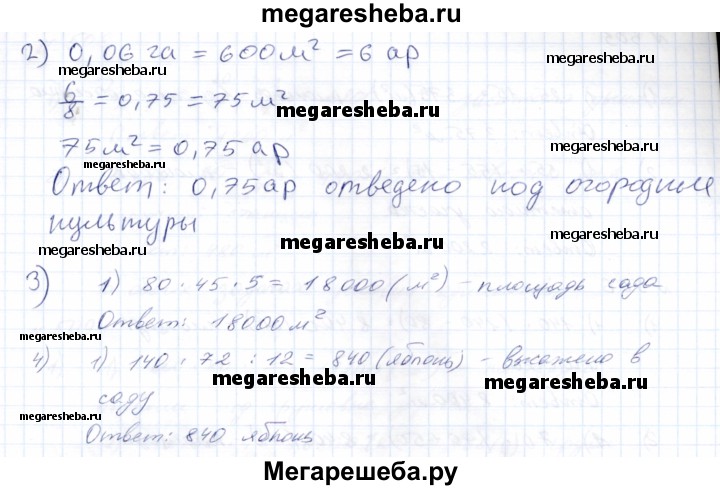 megaresheba.ru
2) 0,06 га = 600 м² = 6 ар
megaresheba.ru
megaresheba.ru
6/8 = 0,75 = 75 м²
megaresheba.ru
75 м² = 0,75 ар
megaresheba.ru
megaresheba.ru
Ответ: 0,75 ар отведено под огородные
культуры
megaresheba.ru
megaresheba.ru
3) 1) 80 · 45 · 5 = 18000 (м²) - площадь сада
Ответ: 18000 м²
megaresheba.ru
4) 1) 140 · 72 : 12 = 840 (яблонь) - высажено в
megaresheba.ru
megaresheba.ru
саду
megaresheba.ru
Ответ: 840 яблонь
Мегарешеба.ру